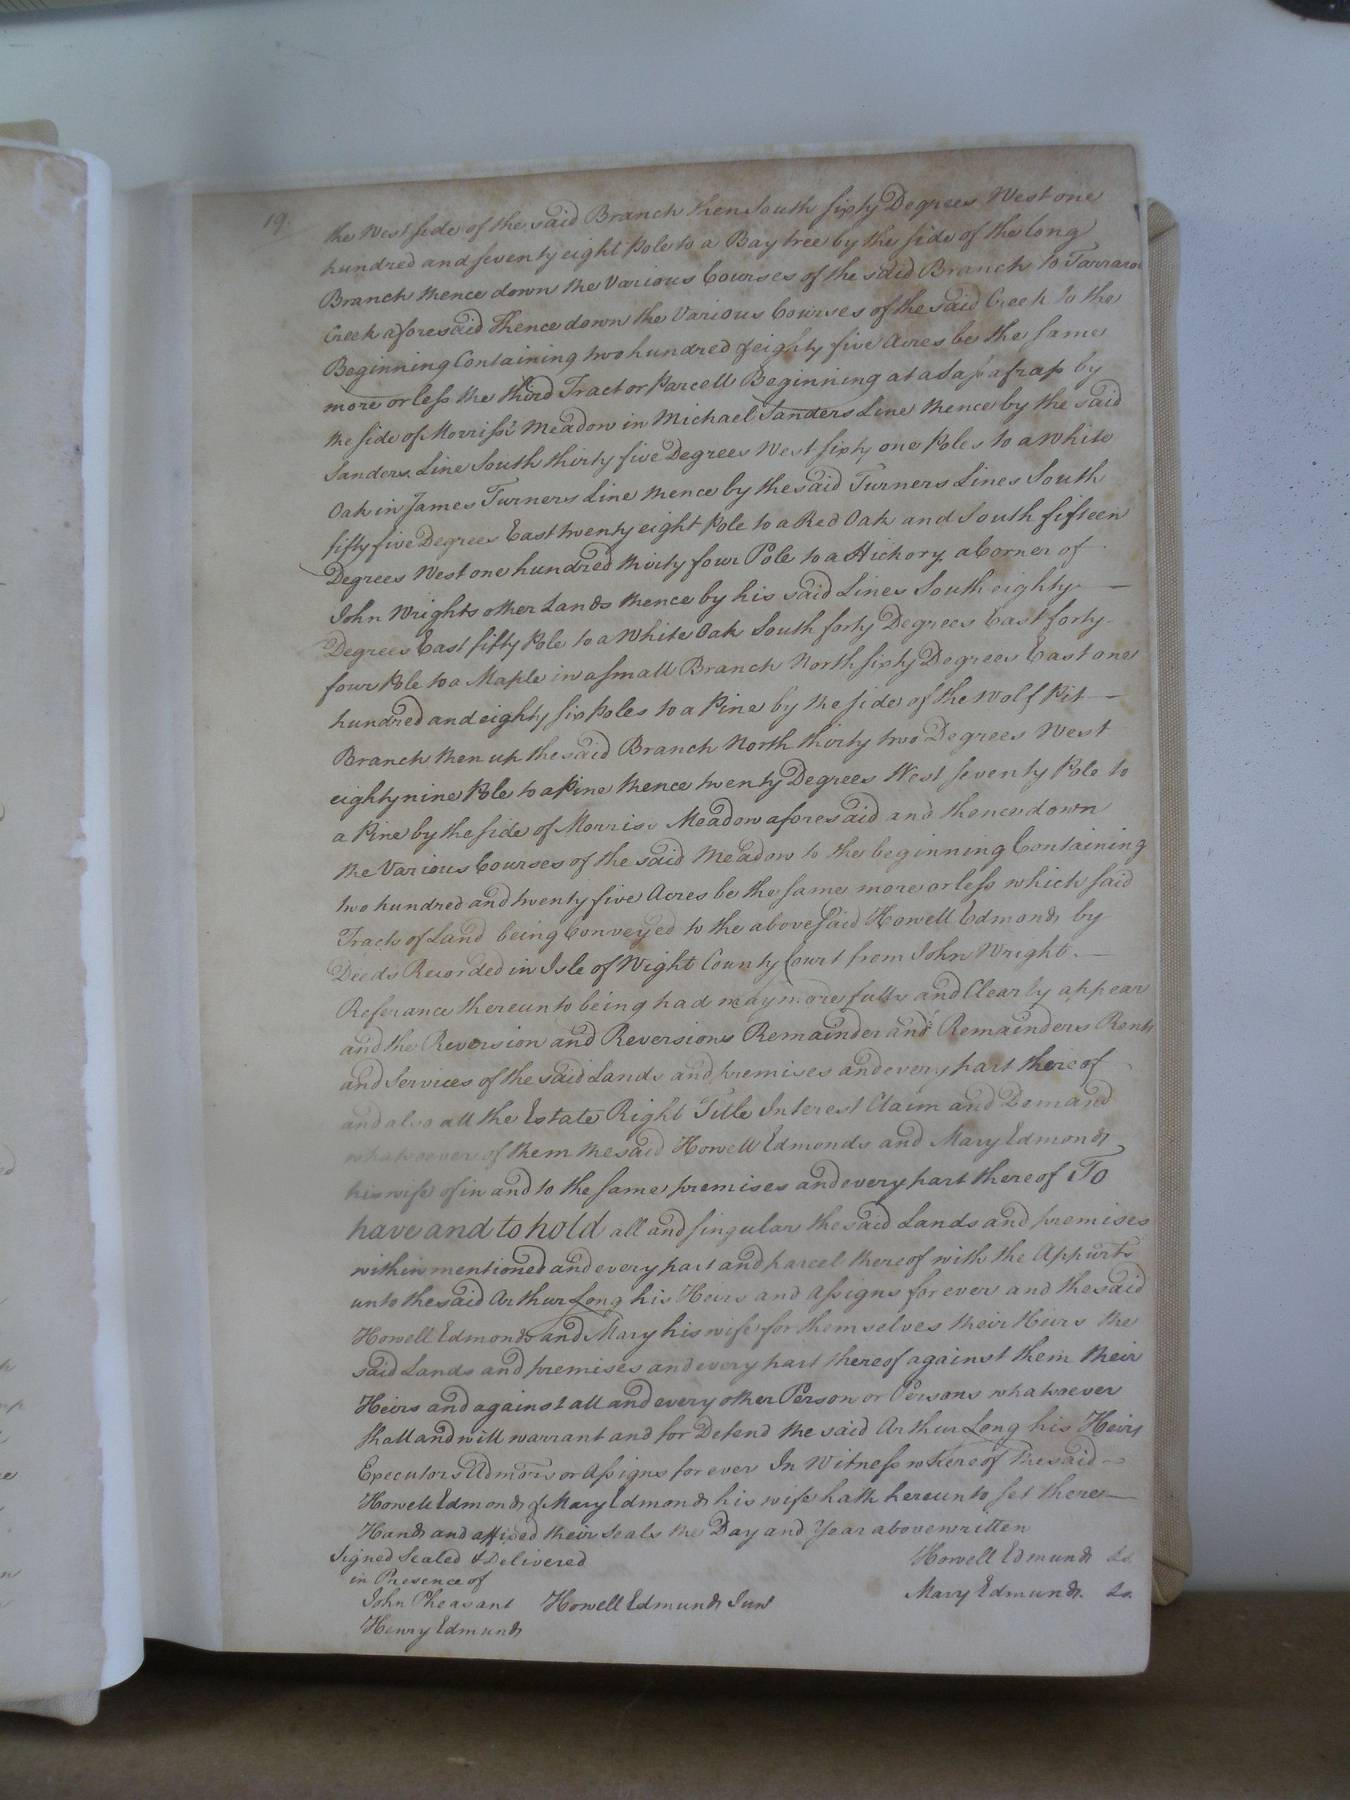 19.
the West side of the said Branch then South sixty Degrees West one
hundred and seventy eight Pole to a Bay tree by the side of the long
Branch thence down the Various Courses of the said Branch to Tarraror
Creek aforesaid Thence down the Various Courses of the said Creek to the
Beginning Containing two hundred & eighty five Acres be the same
more or less the third Tract or Parcell Beginning at a Sassafrass by
the side of Morriss's Meadow in Michael Sanders Line thence by the said
Sanders Line South thirty five Degrees West sixty one Poles to a White
Oak in James Turners Line thence by the said Turners Lines South
fifty five Degrees East twenty eight Pole to a Red Oak and South fifteen
Degrees West one hundred thirty four Pole to a Hickory a Corner of
John Wrights other Lands thence by his said Lines South eighty
Degrees East fifty Pole to a White Oak South forty Degrees East forty
four Pole to a Maple in a small Branch North sixty Degrees East one
hundred and eighty six Poles to a Pine by the side of the Wolf Pit
Branch then up the said Branch North thirty two Degrees West
eighty nine Pole to a Pine thence twenty Degrees West seventy Pole to
a Pine by the side of Morris's Meadow aforesaid and thence down
the Various Courses of the said Meadow to the beginning Containing
two hundred and twenty five Acres be the same more or less which said
Tracts of Land being Conveyed to the above said Howell Edmonds by
Deeds Recorded in Isle of Wight County Court from John Wright.
Referance thereunto being had may more fully and Clearly appear
and the Reversion and Reversions Remainder and Remainders Rents
and Services of the said Lands and premises and every part thereof
and also all the Estate Right Title Interest Claim and Demand
whatsoever of them the said Howell Edmonds and Mary Edmonds
his wife of in and to the same premises and every part thereof To
have and to hold all and singular the said Lands and premises
within mentioned and every part and parcel thereof with the Appurts
unto the said Arthur Long his Heirs and Assigns for ever and the said
Howell Edmonds and Mary his wife for themselves their Heirs the
said Lands and premises and every part thereof against them their
Heirs and against all and every other Person or Persons whatsoever
shall and will warrant and for Defend the said Arthur Long his Heirs
Executors Admors or Assigns for ever In Witness whereof the said
Howell Edmonds & Mary Edmonds his wife hath hereunto set there
Hands and affixed their Seals the Day and Year above written
Signed Sealed & Delivered Howell Edmunds Ls.
in Presence of
John Pheasant Howell Edmunds Junr Mary Edmunds. Ls.
Henry Edmunds